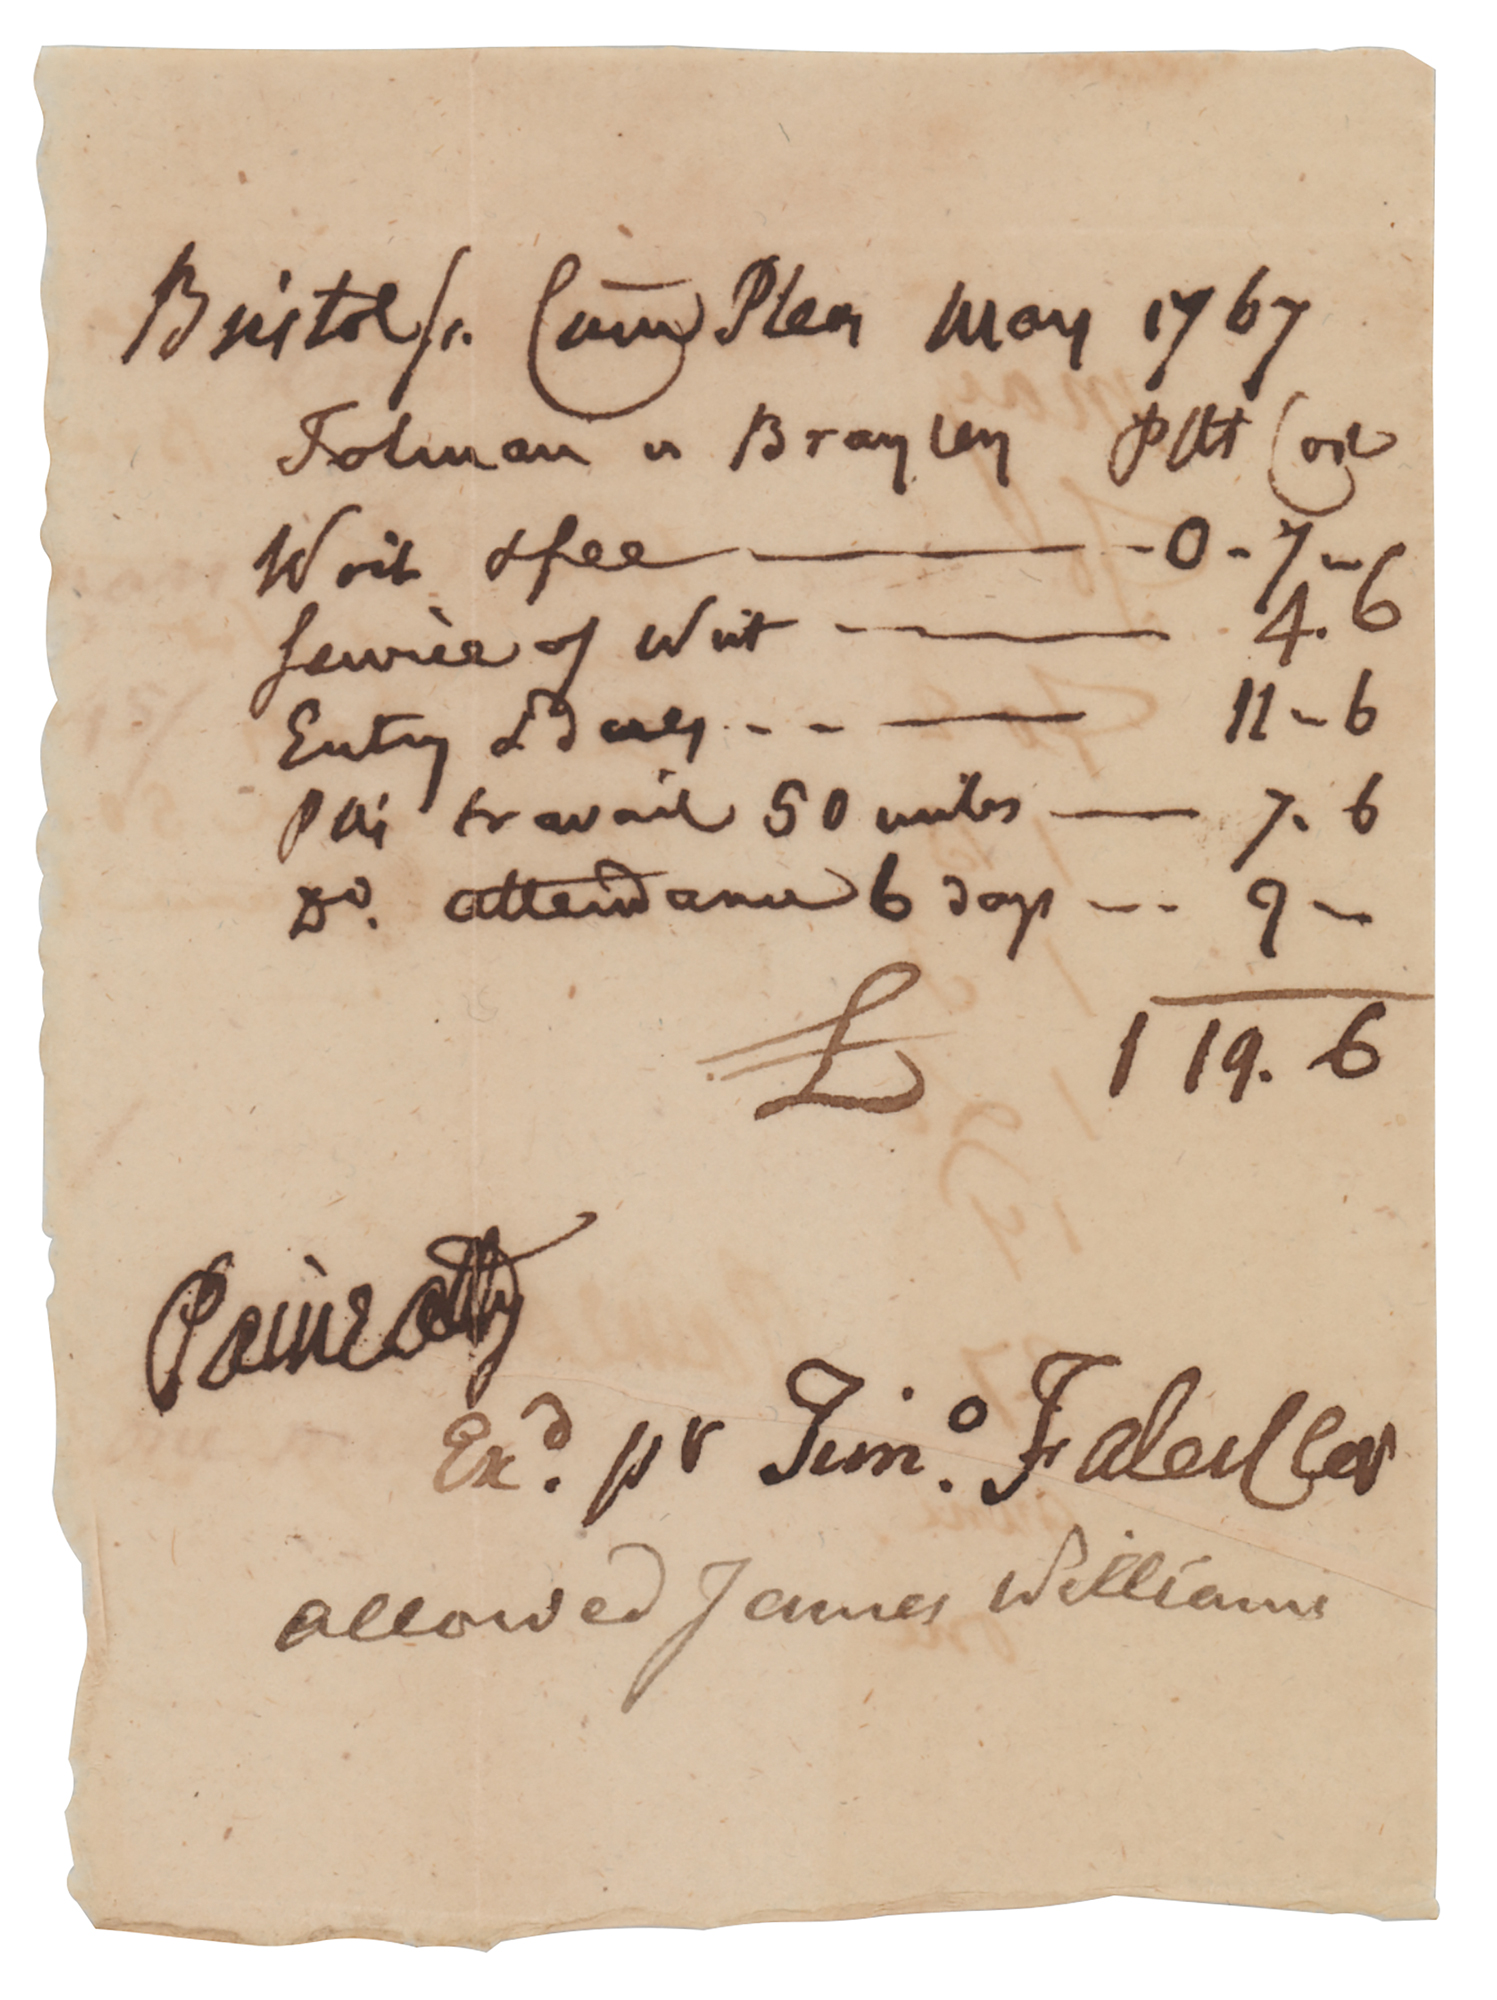 Bristol ss. Com Pleas May 1767
Tolman vs Brayley Plts Cost
Writ & fee — 0 - 7 -
Service of Writ — 4. 6
Entry & - - — 11 - 6
Plts travail 50 miles — 7. 6
Do. attendance 6 days — - - 9 -
£ 1 19. 6
Paine atty
Exd. pr Timo. Fales Cler
allowed James Williams